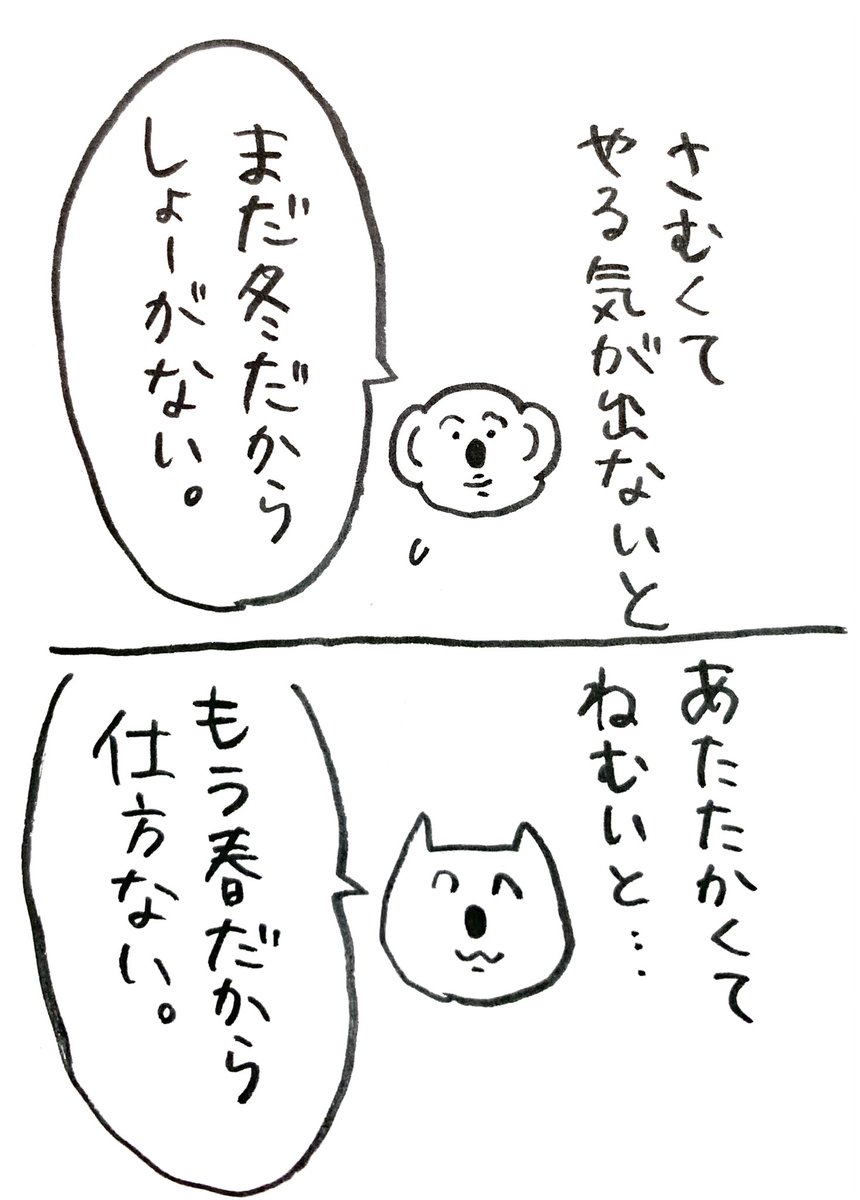 さむくて
やる気が出ないと
まだ冬だから
しょーがない。
あたたかくて
ねむいと…
もう春だから
仕方ない。